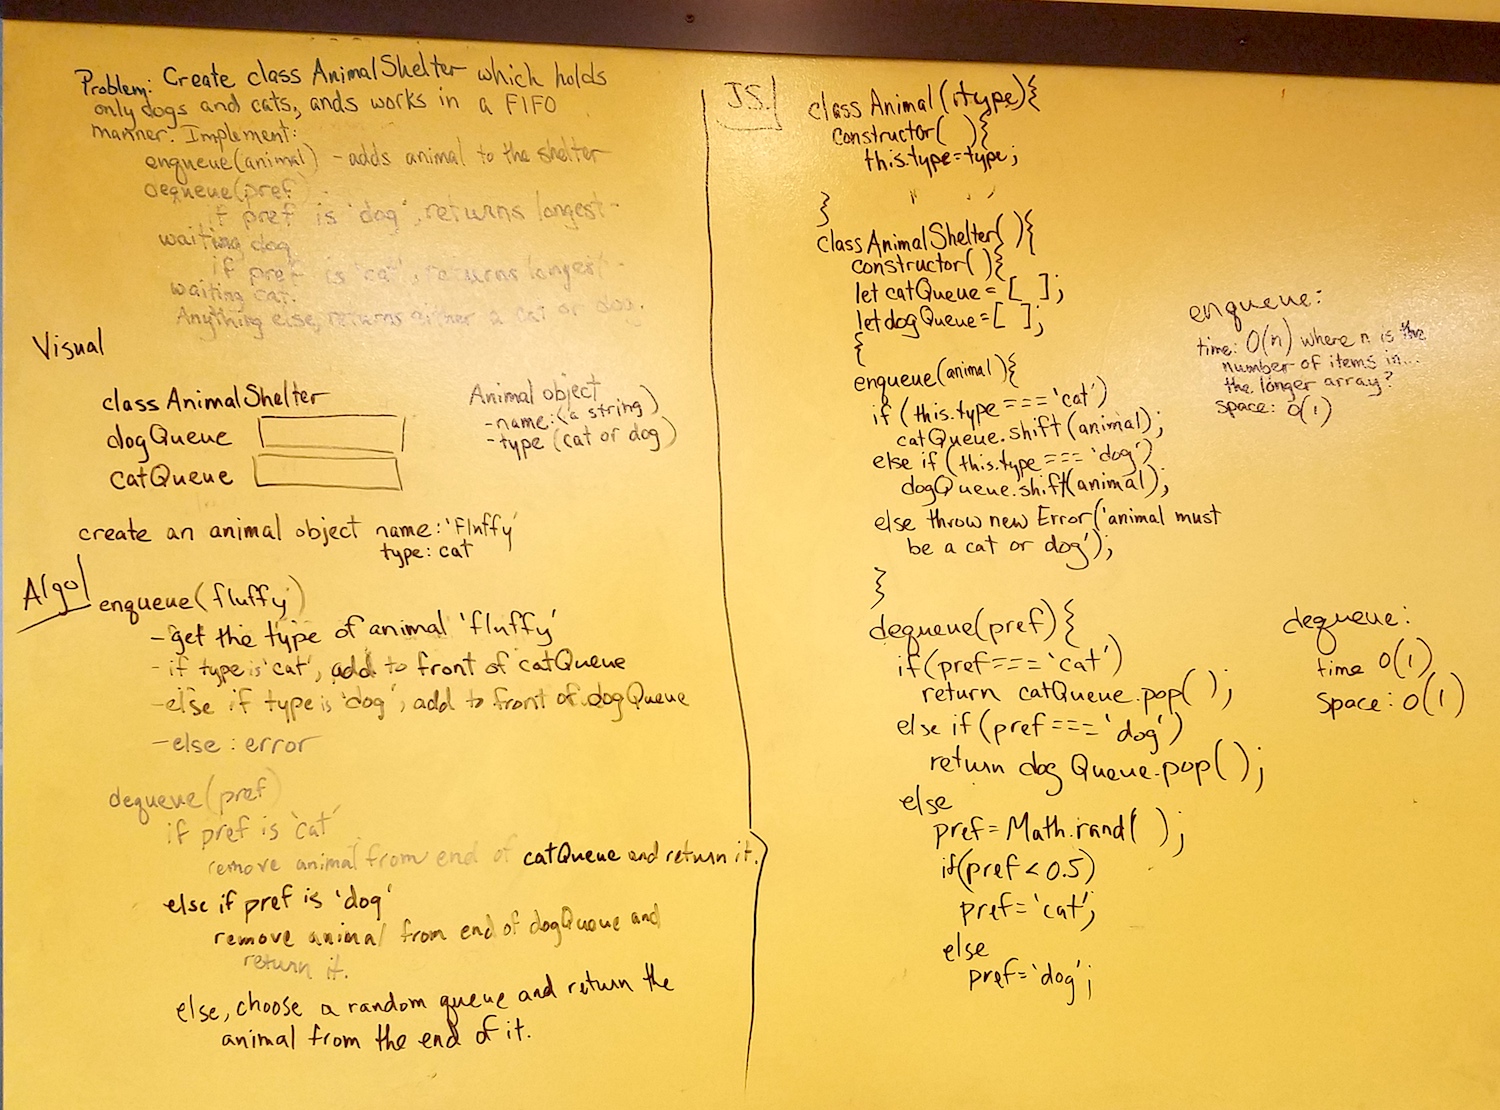 Problem: Create class AnimalShelter which holds
only dogs and cats, ands works in a FIFO
manner. Implement:
enqueue(animal) - adds animal to the shelter
dequeue(pref)
if pref is 'dog', returns longest-
waiting dog
if pref is 'cat', returns longest-
waiting cat.
Anything else, returns either a cat or dog.
Visual
class AnimalShelter
dogQueue
catQueue
Animal object
- name: (a string)
- type (cat or dog)
create an animal object name: 'Fluffy'
type: cat
Algo
enqueue(fluffy)
- get the type of animal 'fluffy'
- if type is 'cat', add to front of catQueue
- else if type is 'dog', add to front of dogQueue
- else : error
dequeue(pref)
if pref is 'cat'
remove animal from end of catQueue and return it.
else if pref is 'dog'
remove animal from end of dogQueue and
return it.
else, choose a random queue and return the
animal from the end of it.
J.S.
class Animal(type){
constructor( ){
this.type=type;
}
class AnimalShelter( ){
constructor( ){
let catQueue = [ ];
let dogQueue = [ ];
{
enqueue(animal){
if (this.type === 'cat')
catQueue.shift(animal);
else if (this.type === 'dog')
dogQueue.shift(animal);
else throw new Error('animal must
be a cat or dog');
}
dequeue(pref){
if(pref === 'cat')
return catQueue.pop( );
else if (pref === 'dog')
return dogQueue.pop( );
else
pref = Math.rand( );
if(pref < 0.5)
pref='cat';
else
pref='dog';
enqueue:
time: O(n) where n is the
number of items in...
the longer array?
space: O(1)
dequeue:
time O(1)
space: O(1)